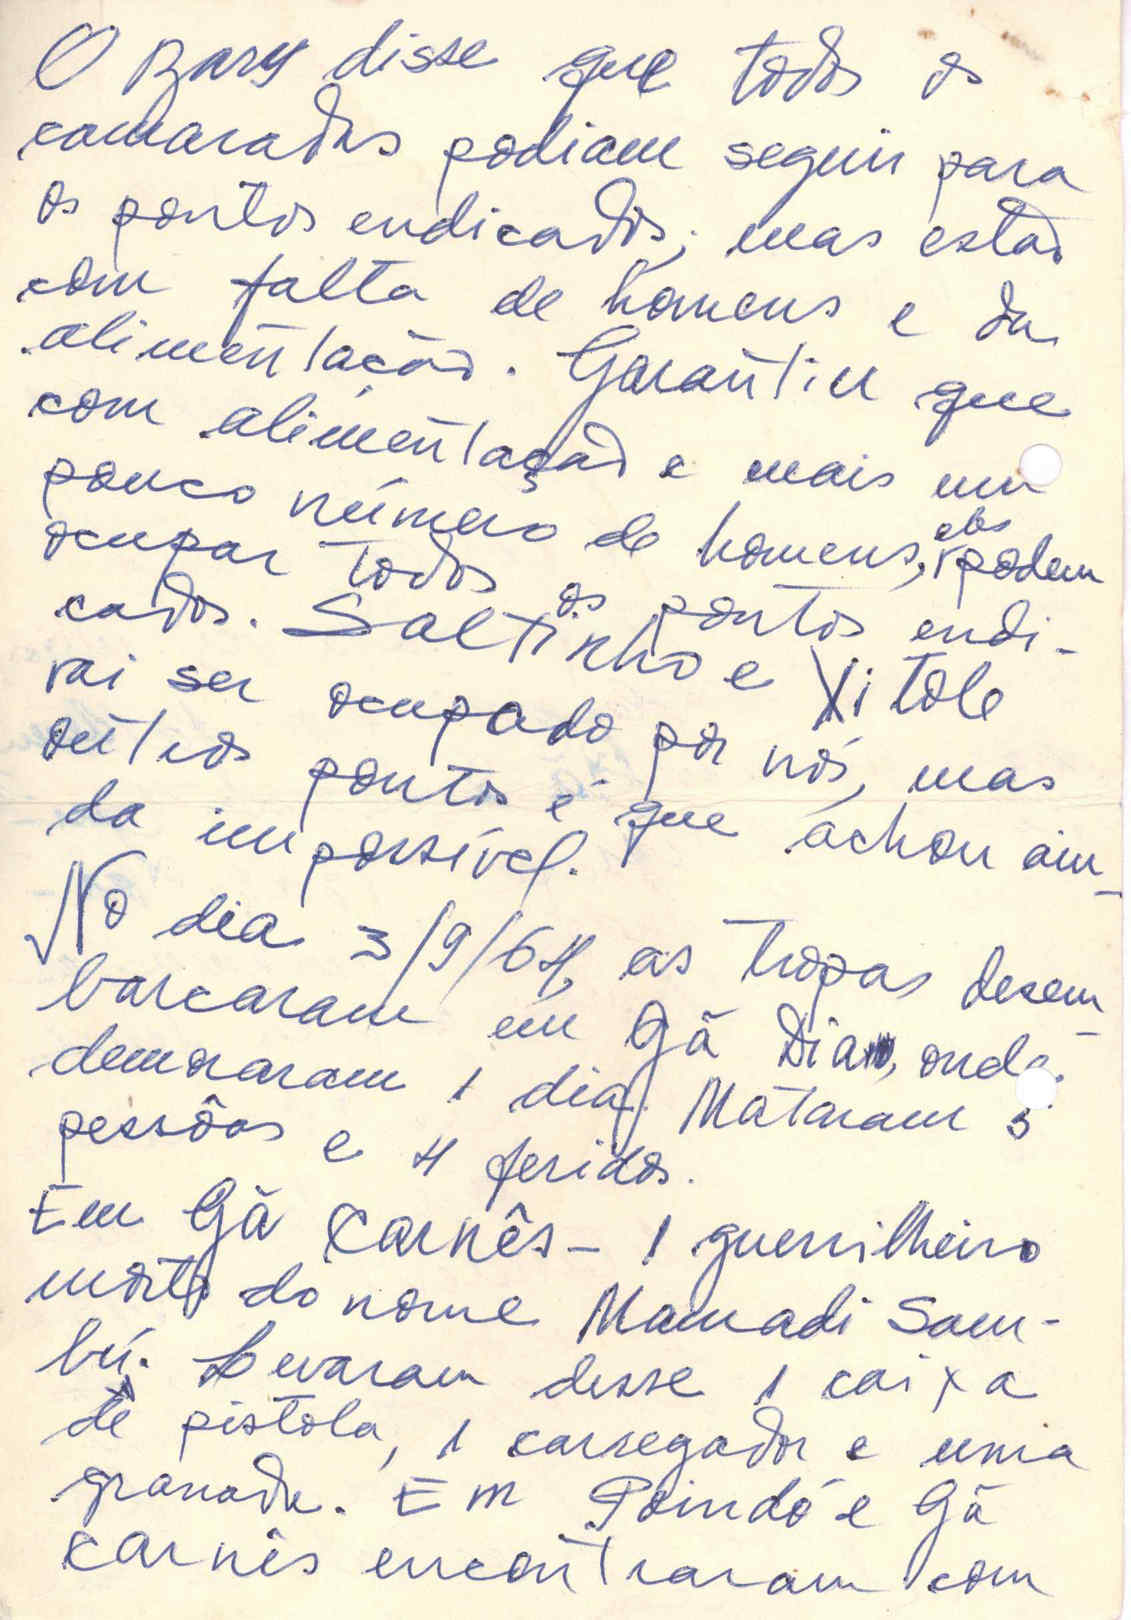 O Bary disse que todos os
camaradas podiam seguir para
os pontos endicados, mas estão
com falta de homens e da
alimentação. Garantiu que
com alimentação e mais um
pouco número de homens, eles podem
ocupar todos os pontos endi-
cados. Saltinho e Xitole
vai ser ocupado por nós, mas
outros pontos é que achou ain-
da impossível.
No dia 3/9/64, as tropas desem-
barcaram em Gã Dia, onde
demoraram 1 dia. Mataram 3
pessôas e 4 feridos.
Em Gã Carnês - 1 guerrilheiro
morto do nome Mamadi Sam-
bú. Levaram desse 1 caixa
de pistola, 1 carregador e uma
granada. Em Poindó e Gã
Carnês encontraram com